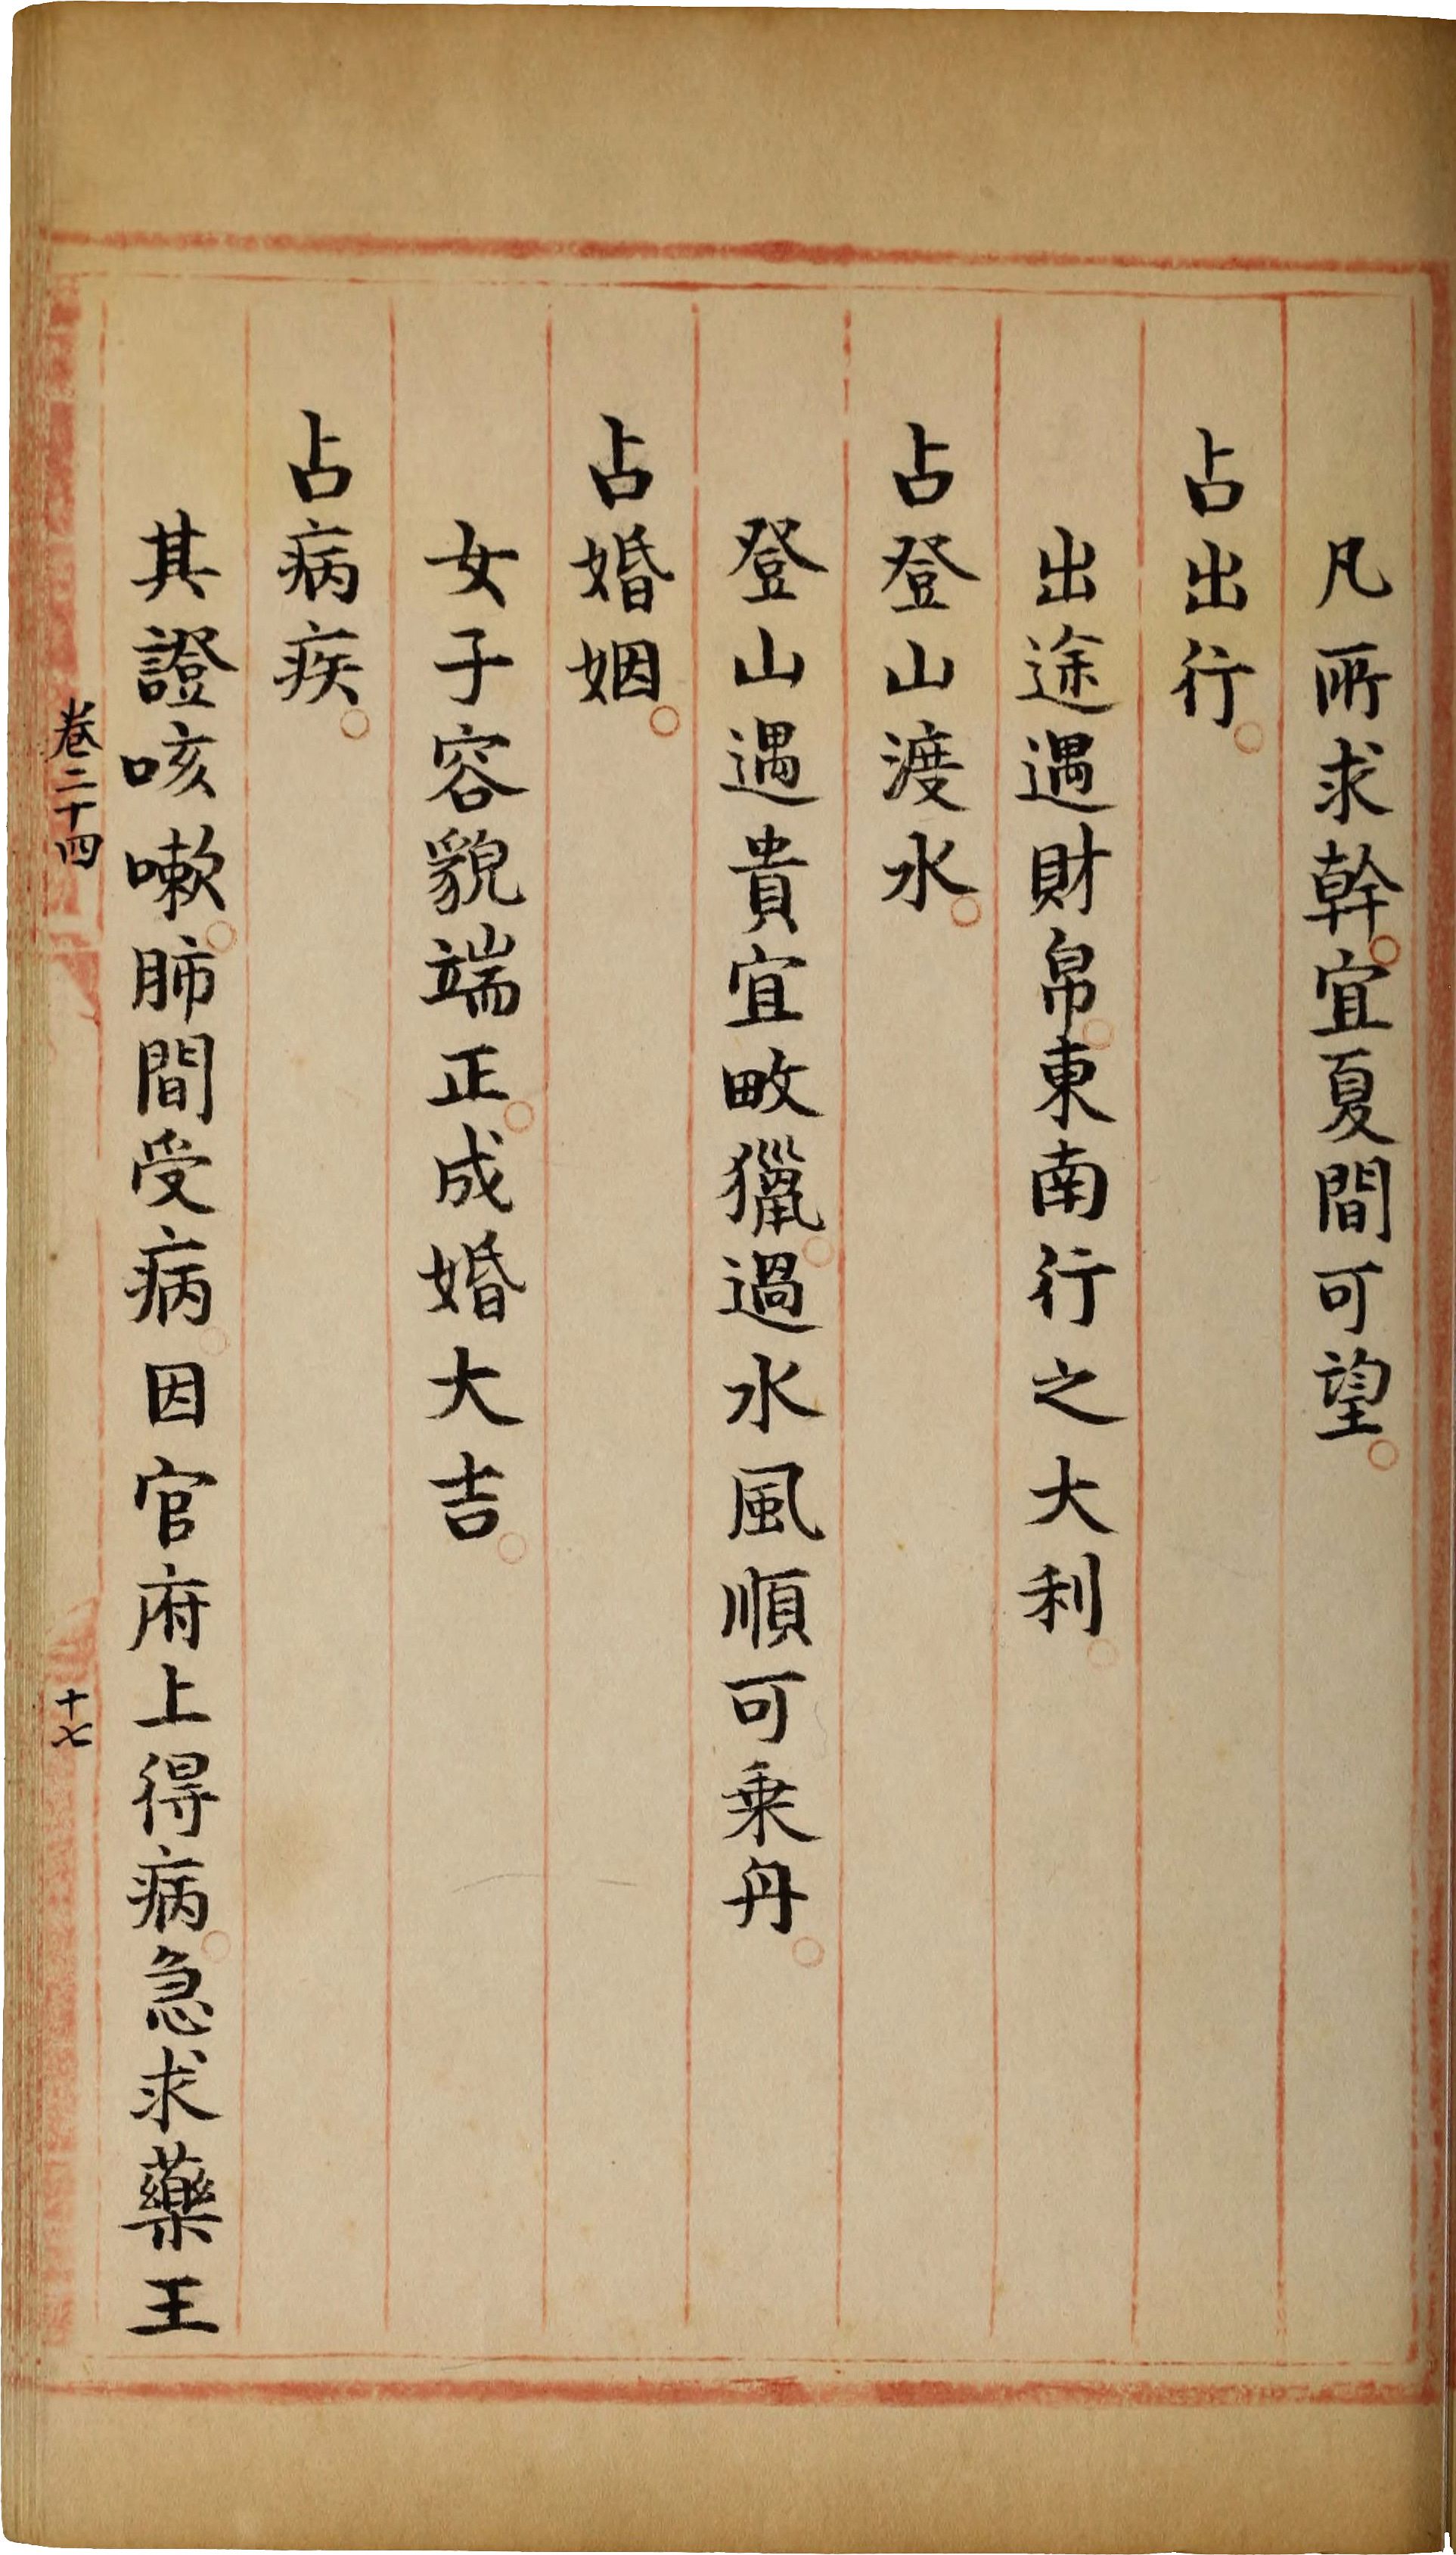 凡所求幹。宜夏間可望。
占出行。
出途遇財帛。東南行之大利。
占登山渡水。
登山遇貴宜畋獵。過水風順可乗舟。
占婚姻。
女子容貌端正。成婚大吉。
占病疾。
其證咳嗽。肺間受病。因官府上得病。急求藥王
卷二十四
十七